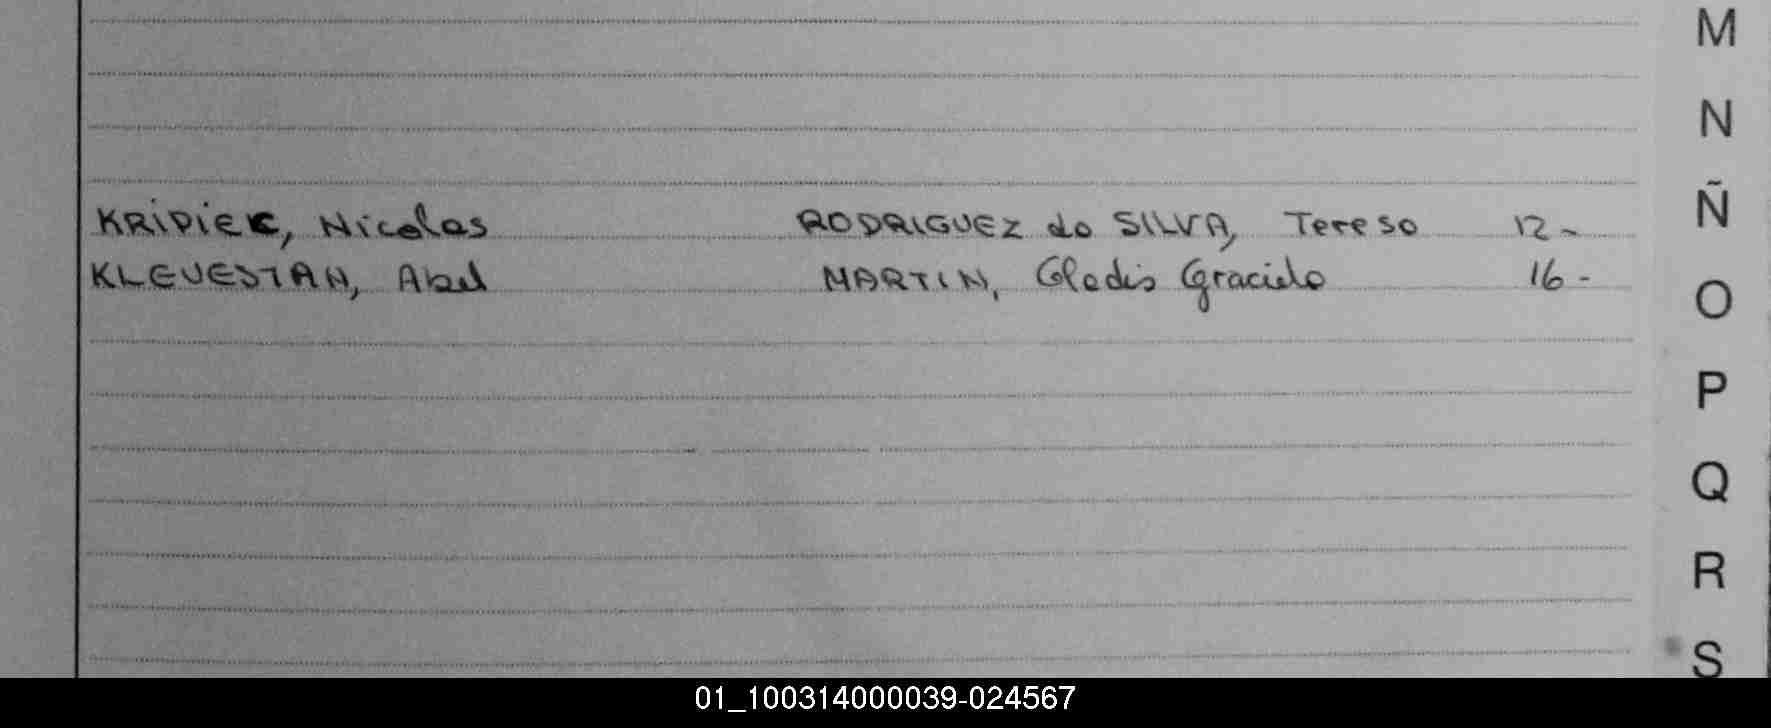 M
N
Ñ
KRIPIEC, Nicolas RODRIGUEZ da SILVA, Teresa 12-
KLEVESTAN, Abel MARTIN, Gladis Graciela 16-
O
P
Q
R
S
01_100314000039-024567